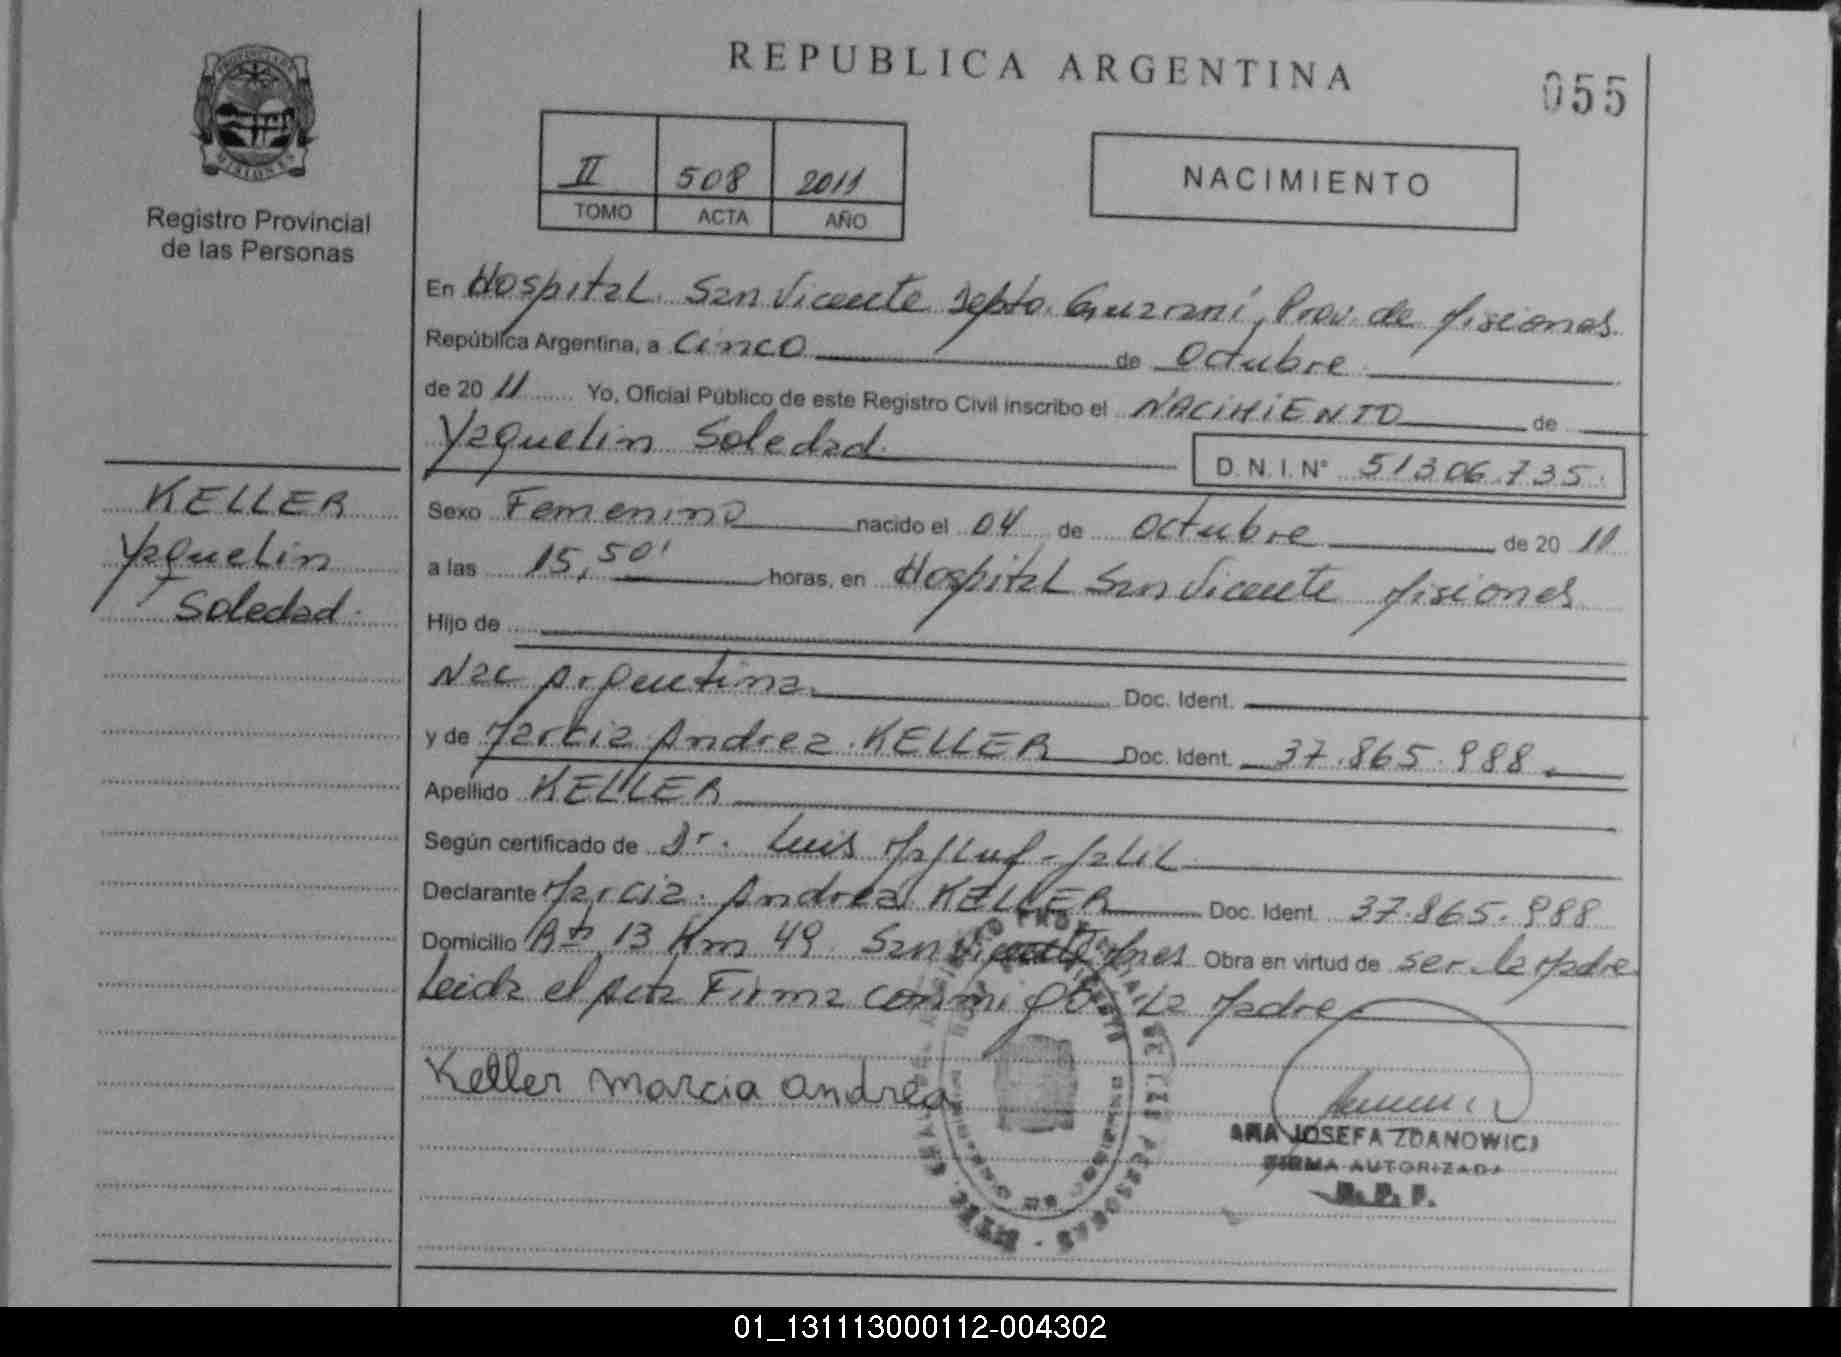 REPUBLICA ARGENTINA
055
PROVINCIA DE MISIONES
Registro Provincial
de las Personas
II 508 2011
TOMO ACTA AÑO
NACIMIENTO
En Hospital San Vicente Depto. Guaraní, Prov. de Misiones
República Argentina, a Cinco de Octubre
de 20 11 Yo, Oficial Público de este Registro Civil inscribo el NACIMIENTO de
Yaquelin Soledad
D.N.I. N° 51306.735.
KELLER
Yaquelin
Soledad.
Sexo Femenino nacido el 04 de Octubre de 20 11
a las 15,50' horas, en Hospital San Vicente Misiones
Hijo de
Nac Argentina Doc. Ident.
y de Marcia Andrea KELLER Doc. Ident. 37.865.988.
Apellido KELLER
Según certificado de Dr. Luis
Declarante Marcia Andrea KELLER Doc. Ident. 37.865.988
Domicilio 13 Km 49 San Vicente Obra en virtud de ser la Madre
Leida el Acta Firma conmigo La Madre
Keller marcia andrea
ANA JOSEFA ZDANOWICZ
FIRMA AUTORIZADA
R. P. P.
01_131113000112-004302